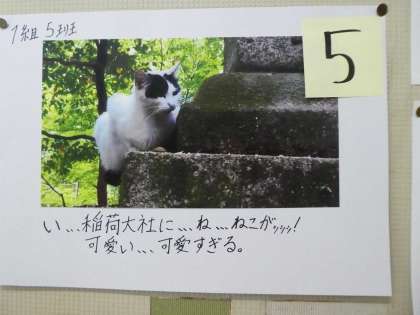 1組 5班
5
い...稲荷大社に...ね...ねこがッッッ!
可愛い...可愛すぎる。